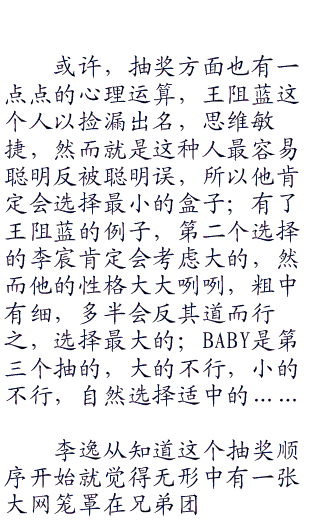 或许，抽奖方面也有一
点点的心理运算，王阻蓝这
个人以捡漏出名，思维敏
捷，然而就是这种人最容易
聪明反被聪明误，所以他肯
定会选择最小的盒子；有了
王阻蓝的例子，第二个选择
的李宸肯定会考虑大的，然
而他的性格大大咧咧，粗中
有细，多半会反其道而行
之，选择最大的；BABY是第
三个抽的，大的不行，小的
不行，自然选择适中的……
李逸从知道这个抽奖顺
序开始就觉得无形中有一张
大网笼罩在兄弟团